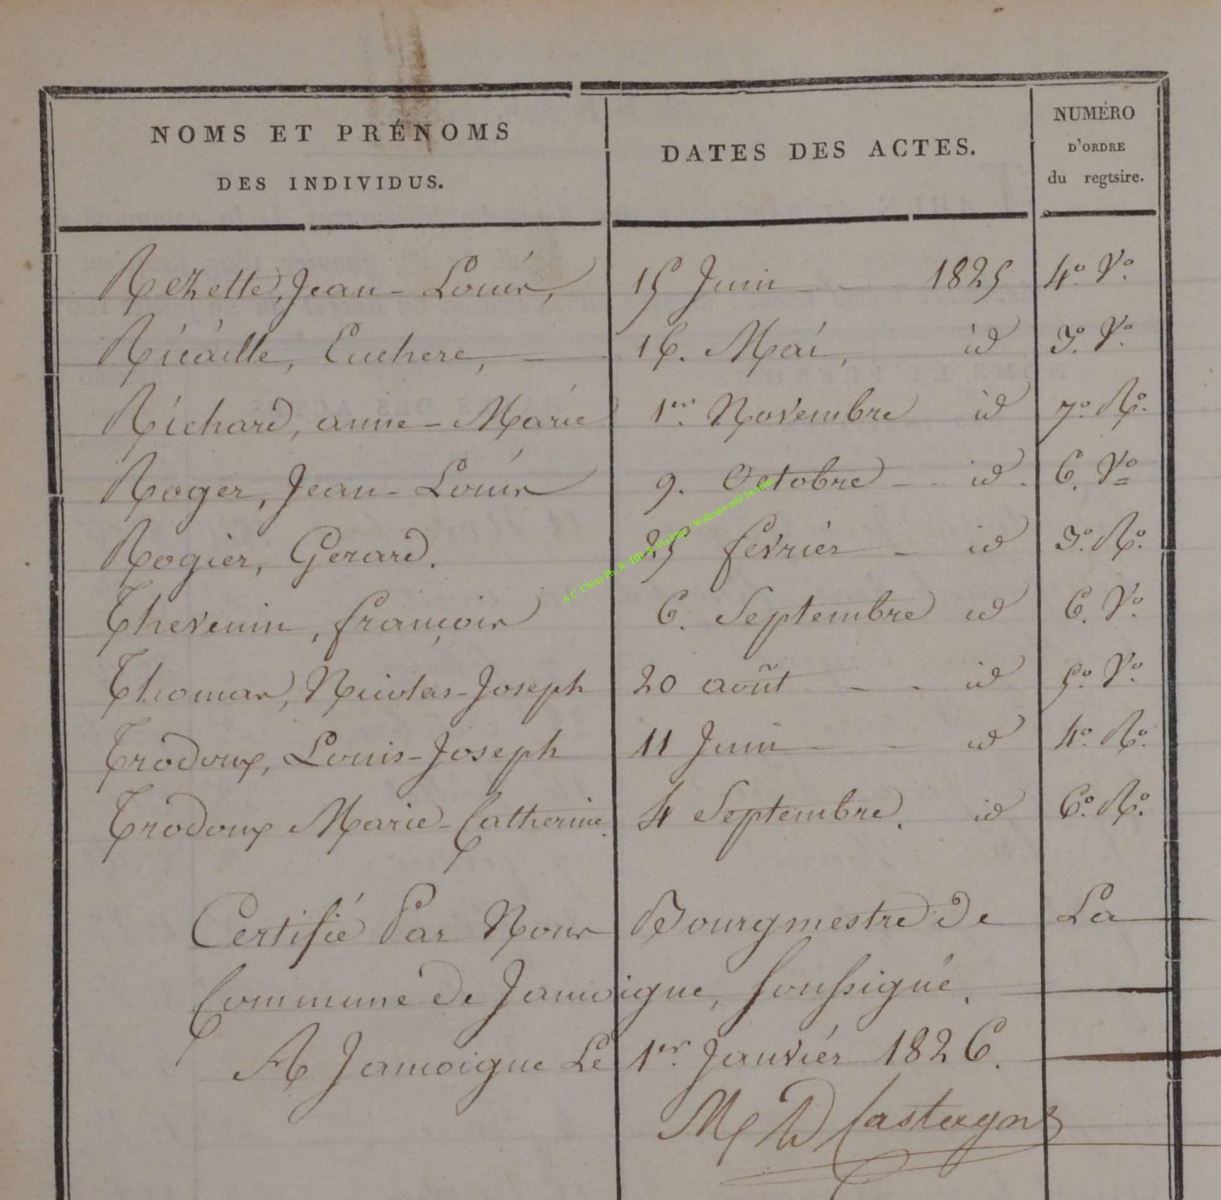 NOMS ET PRÉNOMS
DES INDIVIDUS.
DATES DES ACTES.
NUMÉRO
D'ORDRE
du regtsire.
Rezette, Jean-Louis, 15 Juin 1825 4º Vº
Ricaille, Euchere, 16. Mai, id 3º Vº
Richard, anne-Marie 1er Novembre id 7º Rº
Roger, Jean-Louis 9. Octobre id. 6. Vº
Rogier, Gerard. 25 fevrier id 3º Rº
Thevenin, françois 6. Septembre id 6. Vº
Thomas, Nicolas-Joseph 20 août id 5º Vº
Trodoux, Louis-Joseph 11 Juin id 4º Rº
Trodoux Marie-Catherine. 4 Septembre. id 6º Rº
Certifié Par Nous Bourgmestre de La
Commune de Jamoigne, soussigné.
A Jamoigne Le 1er Janvier 1826.